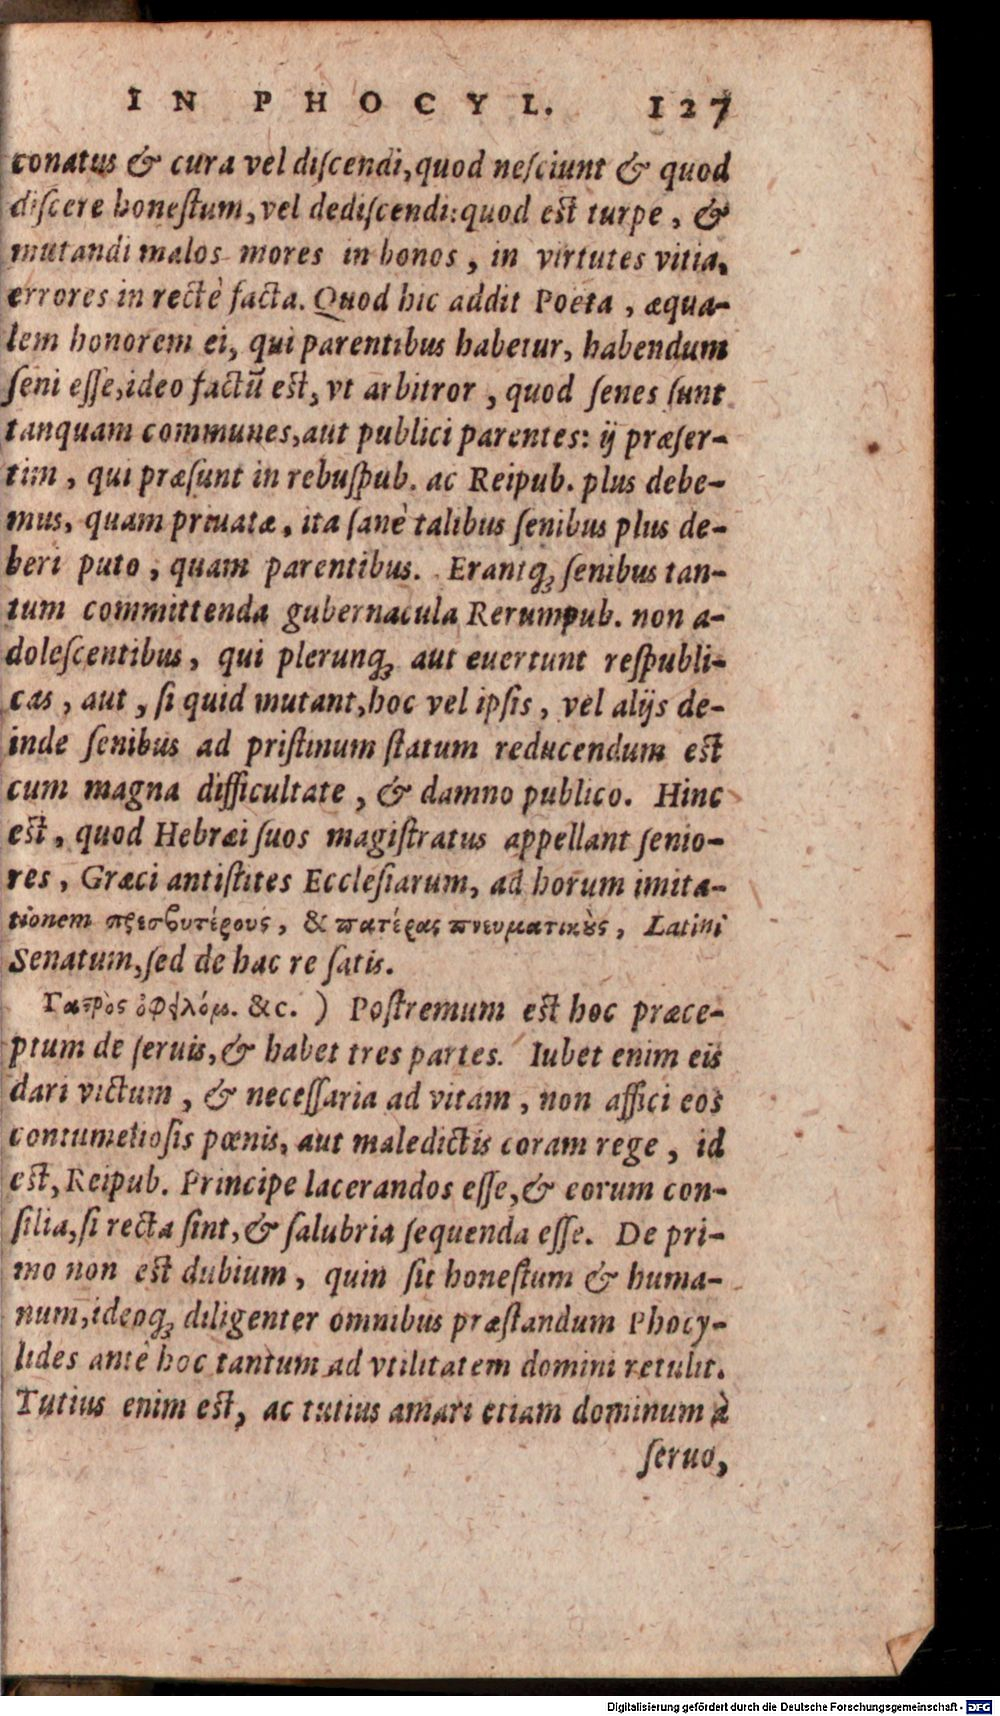 IN PHOCYL. 127
conatus & cura vel diſcendi, quod neſciunt & quod
diſcere honeſtum, vel dediſcendi: quod est turpe, &
mutandi malos mores in bonos, in virtutes vitia,
errores in rectè facta. Quod hic addit Poëta, æqua-
lem honorem ei, qui parentibus habetur, habendum
ſeni eſſe, ideo factū est, vt arbitror, quod ſenes ſunt
tanquam communes, aut publici parentes: ij præſer-
tim, qui præſunt in rebuſpub. ac Reipub. plus debe-
mus, quam priuatæ, ita ſanè talibus ſenibus plus de-
beri puto, quam parentibus. Erantq́; ſenibus tan-
tum committenda gubernacula Rerumpub. non a-
doleſcentibus, qui plerunq́; aut euertunt reſpubli-
cas, aut, ſi quid mutant, hoc vel ipſis, vel alijs de-
inde ſenibus ad priſtinum ſtatum reducendum est
cum magna difficultate, & damno publico. Hinc
est, quod Hebræi ſuos magiſtratus appellant ſenio-
res, Græci antiſtites Eccleſiarum, ad horum imita-
tionem πρεσβυτέρους, & πατέρας πνευματικȣ̀ς, Latini
Senatum, ſed de hac re ſatis.
Γαςρὸς ὀφειλόμ. &c. ) Poſtremum est hoc præce-
ptum de ſeruis, & habet tres partes. Iubet enim eis
dari victum, & neceſſaria ad vitam, non affici eos
contumelioſis pœnis, aut maledictis coram rege, id
est, Reipub. Principe lacerandos eſſe, & eorum con-
ſilia, ſi recta ſint, & ſalubria ſequenda eſſe. De pri-
mo non est dubium, quin ſit honeſtum & huma-
num, ideoq́; diligenter omnibus præſtandum Phocy-
lides antè hoc tantum ad vtilitatem domini retulit.
Tutius enim est, ac tutius amari etiam dominum à
ſeruo,
Digitalisierung gefördert durch die Deutsche Forschungsgemeinschaft - DFG